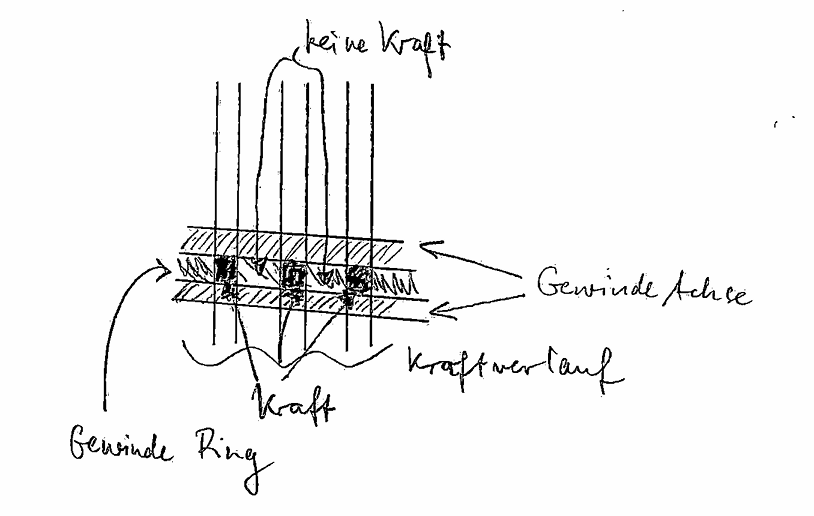 keine Kraft
Gewinde Achse
Kraftverlauf
Kraft
Gewinde Ring